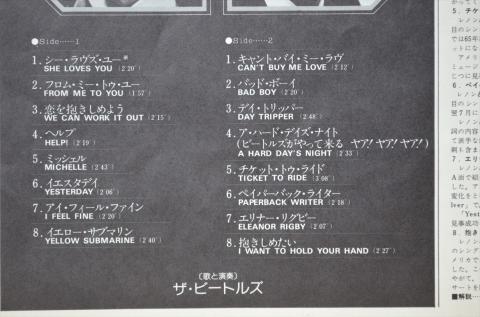 ●Side……1
1. シー・ラヴズ・ユー*
SHE LOVES YOU (2'20")
2. フロム・ミー・トゥ・ユー
FROM ME TO YOU (1'57")
3. 恋を抱きしめよう
WE CAN WORK IT OUT (2'15")
4. ヘルプ
HELP! (2'19")
5. ミッシェル
MICHELLE (2'43")
6. イエスタデイ
YESTERDAY (2'06")
7. アイ・フィール・ファイン
I FEEL FINE (2'20")
8. イエロー・サブマリン
YELLOW SUBMARINE (2'40")
●Side……2
1. キャント・バイ・ミー・ラヴ
CAN'T BUY ME LOVE (2'12")
2. バッド・ボーイ
BAD BOY (2'20")
3. デイ・トリッパー
DAY TRIPPER (2'48")
4. ア・ハード・デイズ・ナイト
(ビートルズがやって来る ヤァ!ヤァ!ヤァ!)
A HARD DAY'S NIGHT (2'33")
5. チケット・トゥ・ライド
TICKET TO RIDE (3'08")
6. ペイパーバック・ライター
PAPERBACK WRITER (2'18")
7. エリナー・リグビー
ELEANOR RIGBY (2'07")
8. 抱きしめたい
I WANT TO HOLD YOUR HAND (2'27")
(歌と演奏)
ザ・ビートルズ
5. チケ
レノン
目のシン
では65年
ットにな
アメリ
ミュージ
じつに見
6. ペイ
レノン&
目のシン
翌7月に
詞の内容
て派手な
7. エリ
レノン
A面で紹
した。ア
変化をと
lver」で
「Yest
見事成功
8. 抱き
レノン
のシング
メリカで
した。こ
やがて、
サートを
■解説…